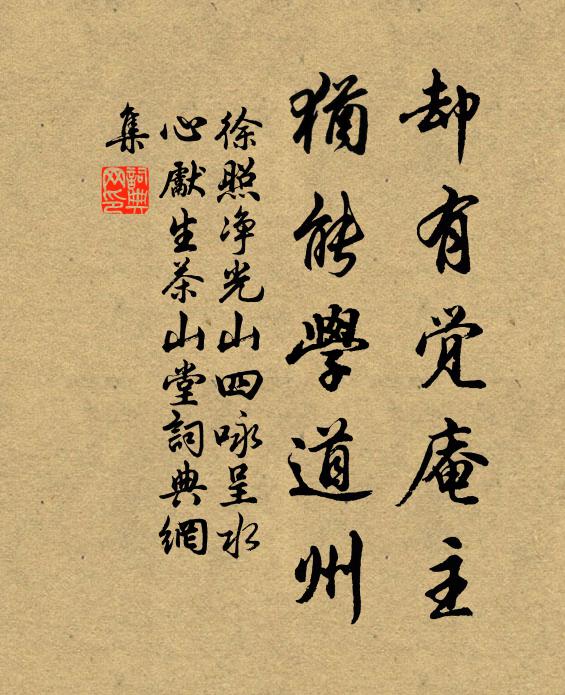 却有觉庵主
犹能學道州
徐照净光山四咏呈水
心獻生茶山堂詞典網
集
詞典網印